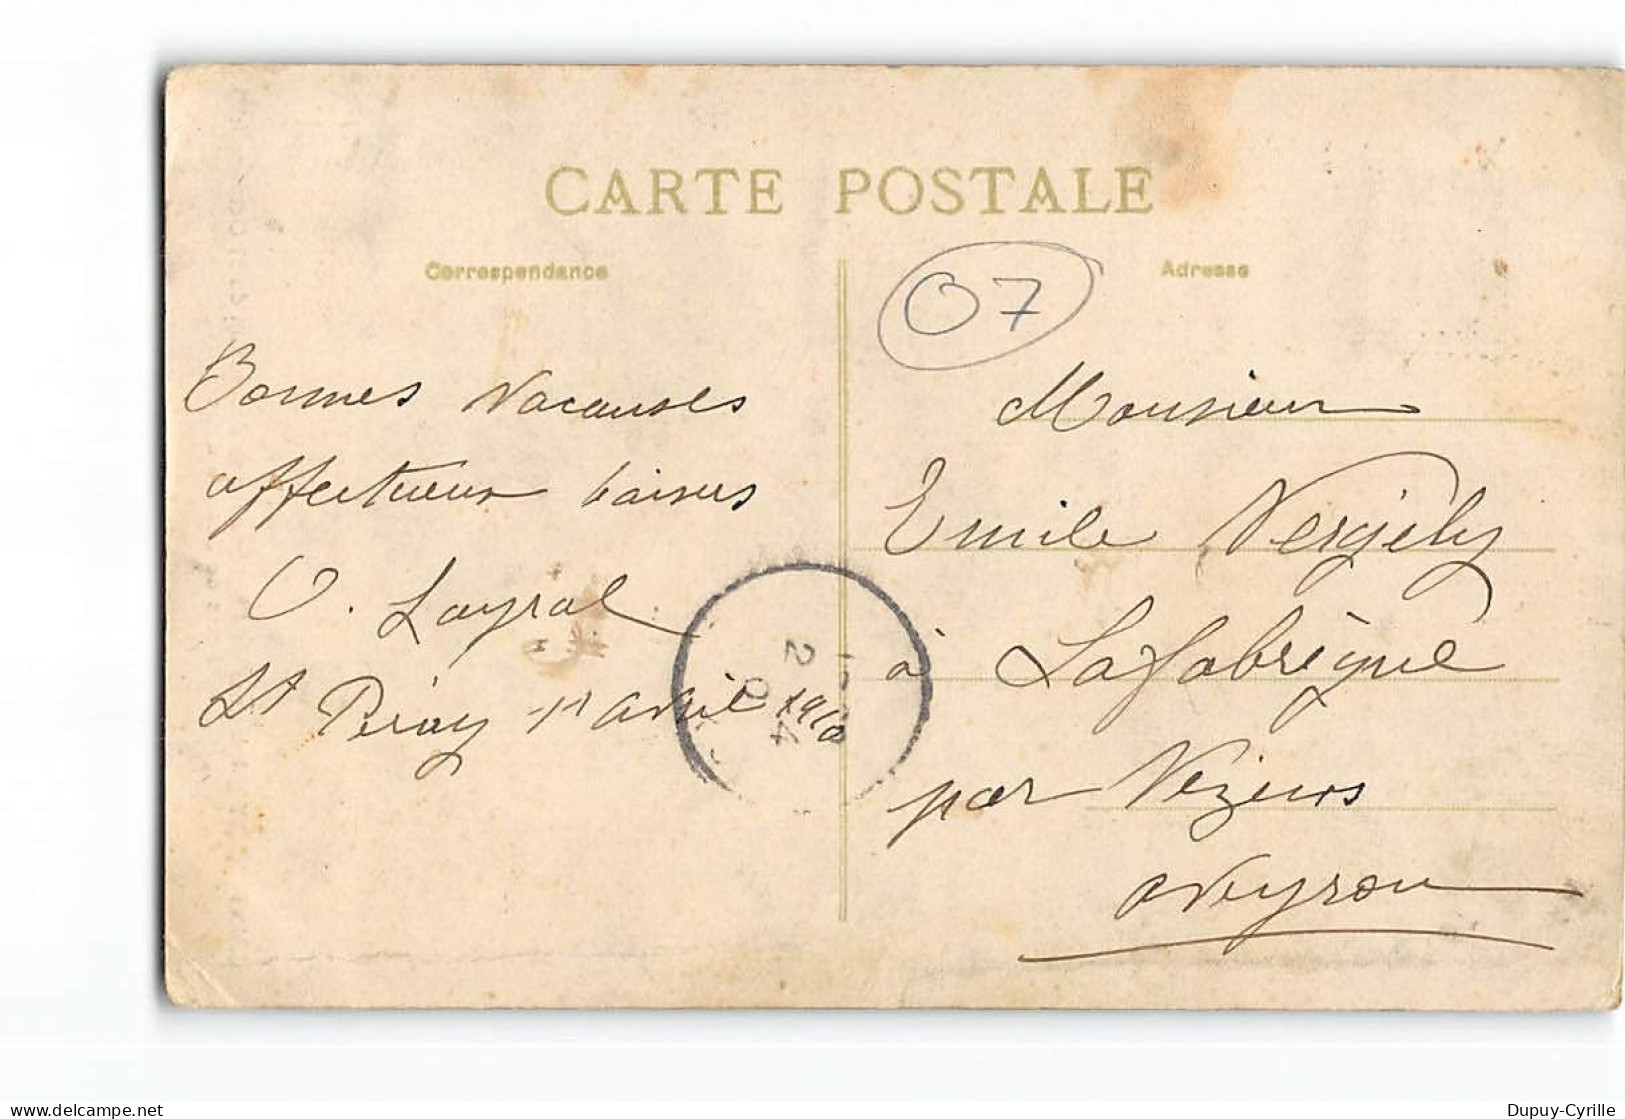 CARTE POSTALE
Correspondance
Adresse
07
Bonnes Vacances
affectueux baisers
O. Layral
St Péray 1er avril 1910
Monsieur
Emile Vergély
à Lafabrègue
par Vezins
Aveyron
delcampe.net
Dupuy-Cyrille